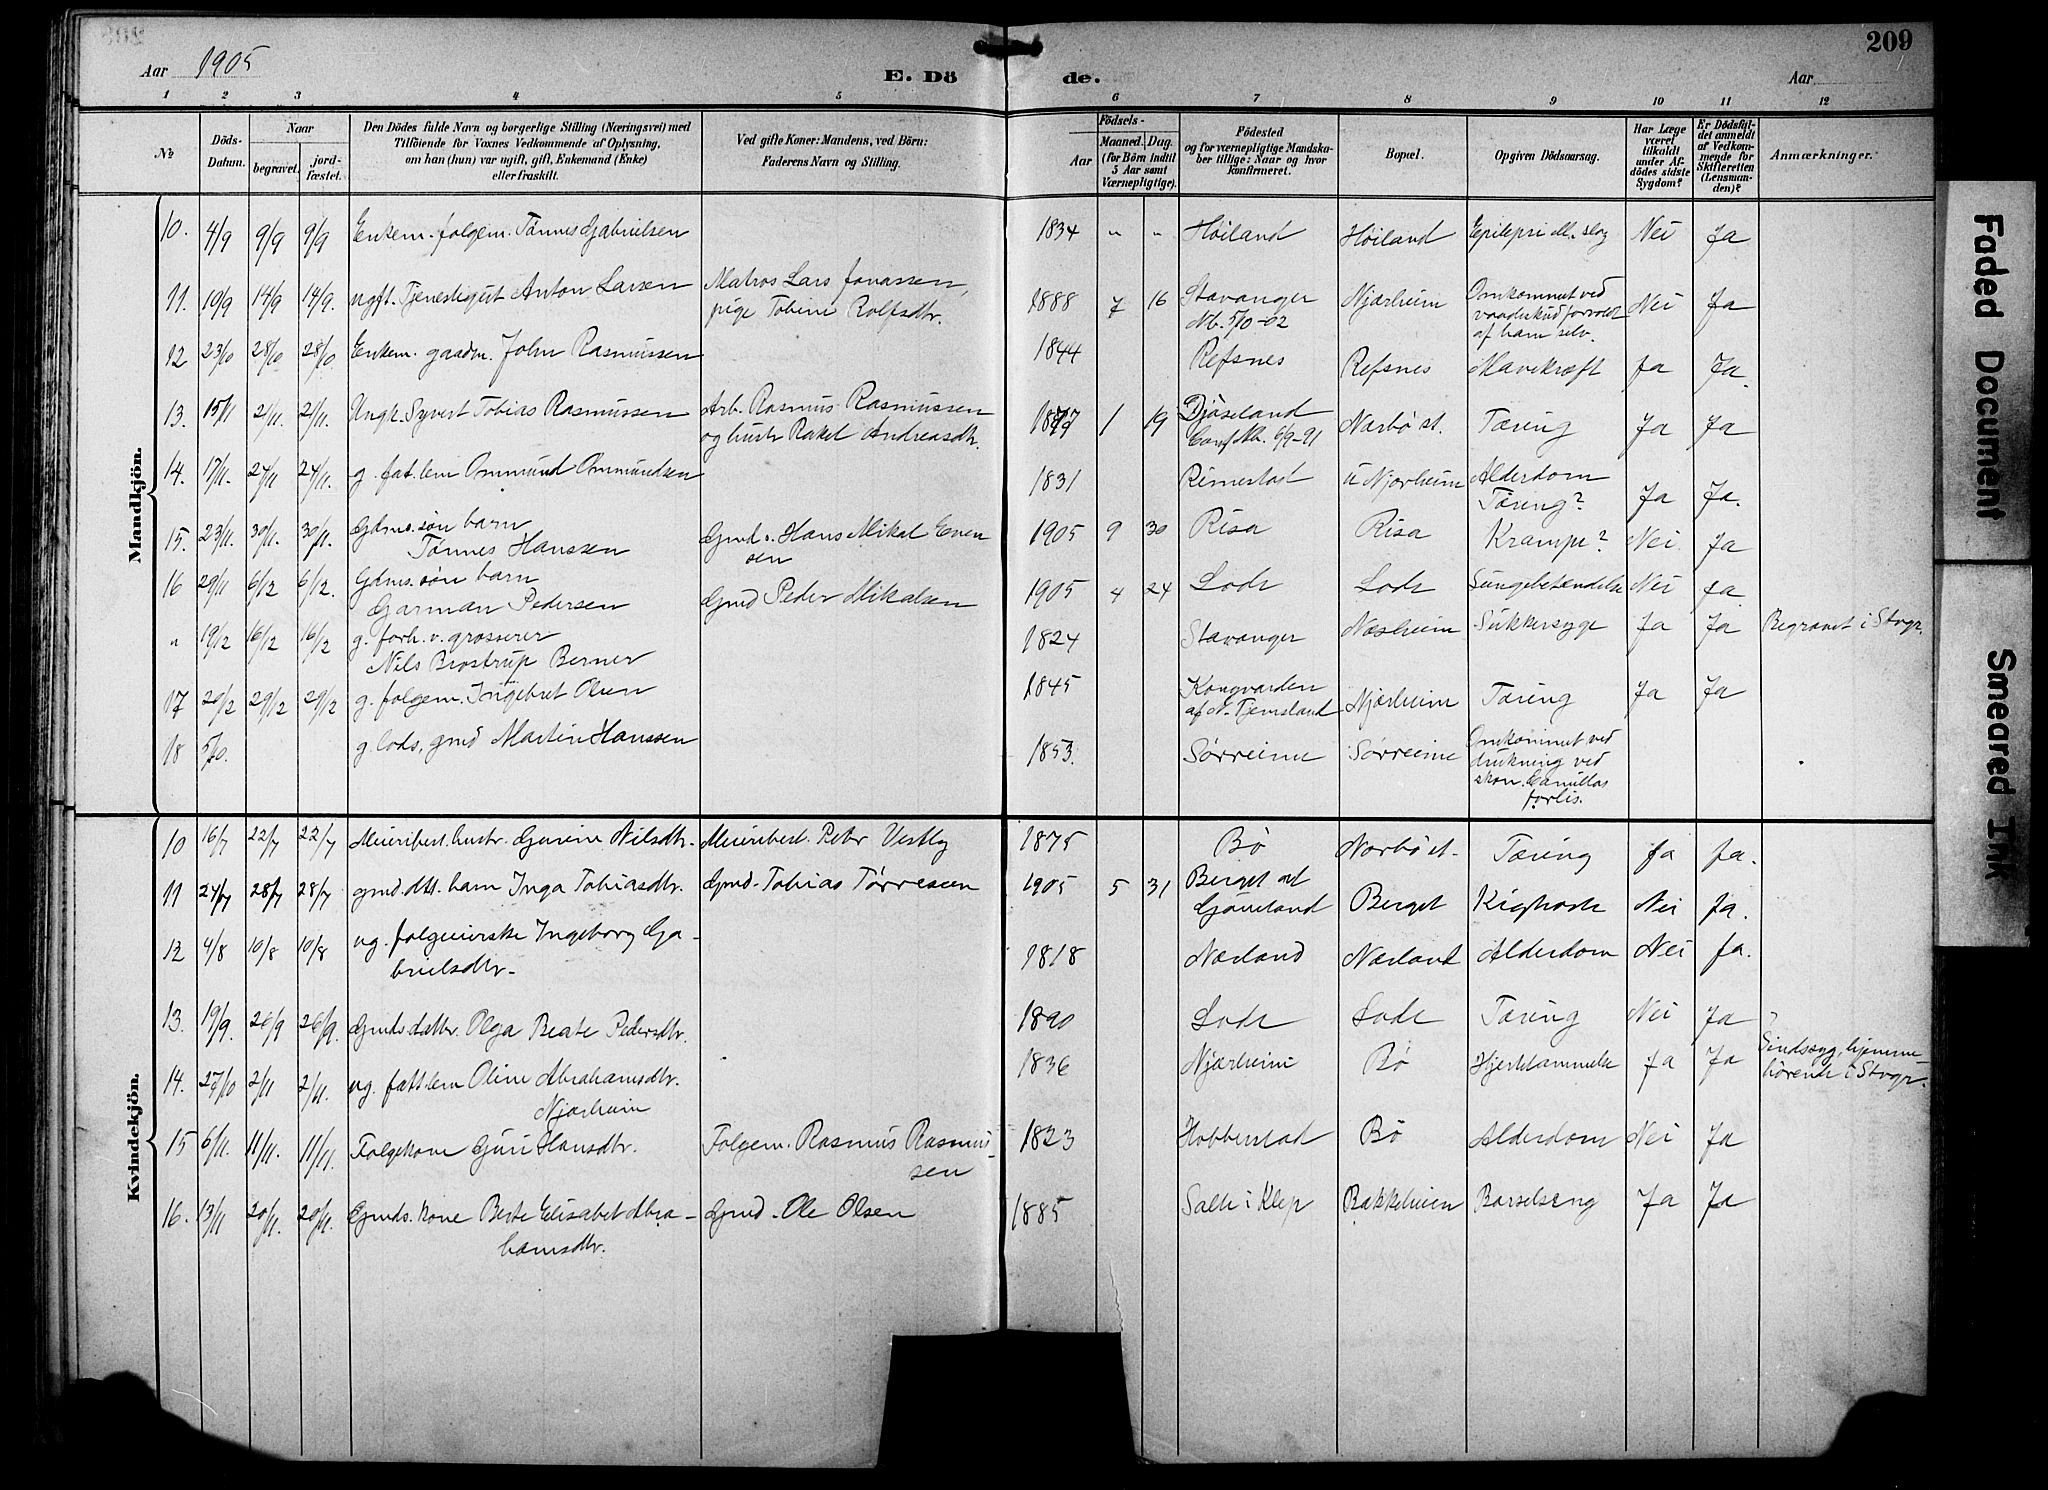 209
Aar 1905
E. Dö de.
Aar
1 2 3 4 5 6 7 8 9 10 11 12
№
Döds-Datum.
Naar
begravet.
jord-fæstet.
Den Dödes fulde Navn og borgerlige Stilling (Næringsvei) med
Tilföiende for Voxnes Vedkommende af Oplysning,
om han (hun) var ugift, gift, Enkemand (Enke)
eller fraskilt.
Ved gifte Koner: Mandens, ved Börn:
Faderens Navn og Stilling.
Födsels-
Aar
Maaned. Dag.
(for Börn indtil
5 Aar samt
Værnepligtige).
Födested
og for værnepligtige Mandska-
ber tillige: Naar og hvor
konfirmeret.
Bopæl.
Opgiven Dödsaarsag.
Har Læge
været
tilkaldt
under Af-
dödes sidste
Sygdom?
Er Dödsfal-
det anmeldt
af Vedkom-
mende for
Skifteretten
(Lensman-
den)?
Anmærkninger.
Mandkjön.
10. 4/9 9/9 9/9 Enkem. folgem. Tønnes Gabrielsen 1834 " " Høiland Høiland Epilepsi el. slag Nei Ja
11. 10/9 14/9 14/9. ugft. Tjenestegut Anton Larsen Matros Lars Jonassen, 1888 7 16 Stavanger Njærheim Omkommet ved Nei Ja
pige Tobine Rolfsdtr. Nb. 5/10-02 vaadeskud forvoldt
af ham selv.
12 23/10 28/10 28/10 Enkem. gaadm. John Rasmussen 1844 Refsnes Refsnes Mavekræft Ja Ja.
13. 15/11 21/11. 21/11. Ungk. Syvert Tobias Rasmussen Arb. Rasmus Rasmussen 1877 1 19 Djøseland Nærbø st. Tæring Ja Ja
og hustr Rakel Andreasdtr. Conf. Nb. 6/9-91
14. 17/11. 24/11 24/11. g. fat. lem Ommund Ommundsen 1831 Rimestad u Njærheim Alderdom Ja Ja.
Tæring?
15. 23/11. 30/11. 30/11. Gdms. søn barn Gmd. Hans Mikal Even 1905 9 30 Risa Risa Krampe? Nei Ja
Tønnes Hanssen sen
16 29/11 6/12 6/12. Gdms. søn barn Gmd Peder Mikalsen 1905 4 24 Lode Lode Lungebetændelse Nei Ja
Garman Pedersen
" 19/12 16/12 16/12 g. forh. v. grosserer 1824 Stavanger Næsheim Sukkersyge Ja Ja Begravet i Stvgr.
Nils Brostrup Berner
17 20/12 29/12 29/12 g. folgem. Ingebret Olsen 1845 Kongvarden Njærheim Tæring Ja Ja
af N. Tjemsland
18 5/10. g. lods, gmd Martin Hanssen 1853. Sørreime Sørreime Omkommet ved
drukning ved
skon. Camillas
forlis.
Kvindekjön.
10 16/7 22/7 22/7 Meieribest. hustr. Gurine Nilsdtr. Meieribest. Peter Vestly 1875 Bø Nærbø st. Tæring Ja Ja.
11 24/7 28/7 28/7 gmd. dtt. barn Inga Tobiasdtr. Gmd. Tobias Tørressen 1905 5 31 Berget al Berget Kighoste Nei Ja.
12 4/8 10/8 10/8 ug. folgeierske Ingeborg Ga- 1818 Nærland Nærland Alderdom Nei Ja.
brielsdtr.
13. 19/9. 26/9 26/9. Gmds. datter. Olga Beate Pedersdtr. 1890 Lode Lode Tæring Nei Ja
14. 27/10 2/11 2/11. ug. fatt. lem Oline Abrahamsdtr. 1836 Njærheim Bø Hjertelammelse Ja Ja Sindssyg, hjemme-
Njærheim hørende i Stvgr.
15 6/11. 11/11. 11/11. Folgekone Guri Hansdtr. Folgem. Rasmus Rasmus- 1823 Hobberstad Bø Alderdom Nei Ja
sen
16. 13/11 20/11. 20/11. Gmds. kone Berte Elisabet Abra- Gmd. Ole Olsen 1885 Salte i Klep Bakkeheien Barselseng Ja Ja
hamsdtr.
Faded Document
Smeared Ink